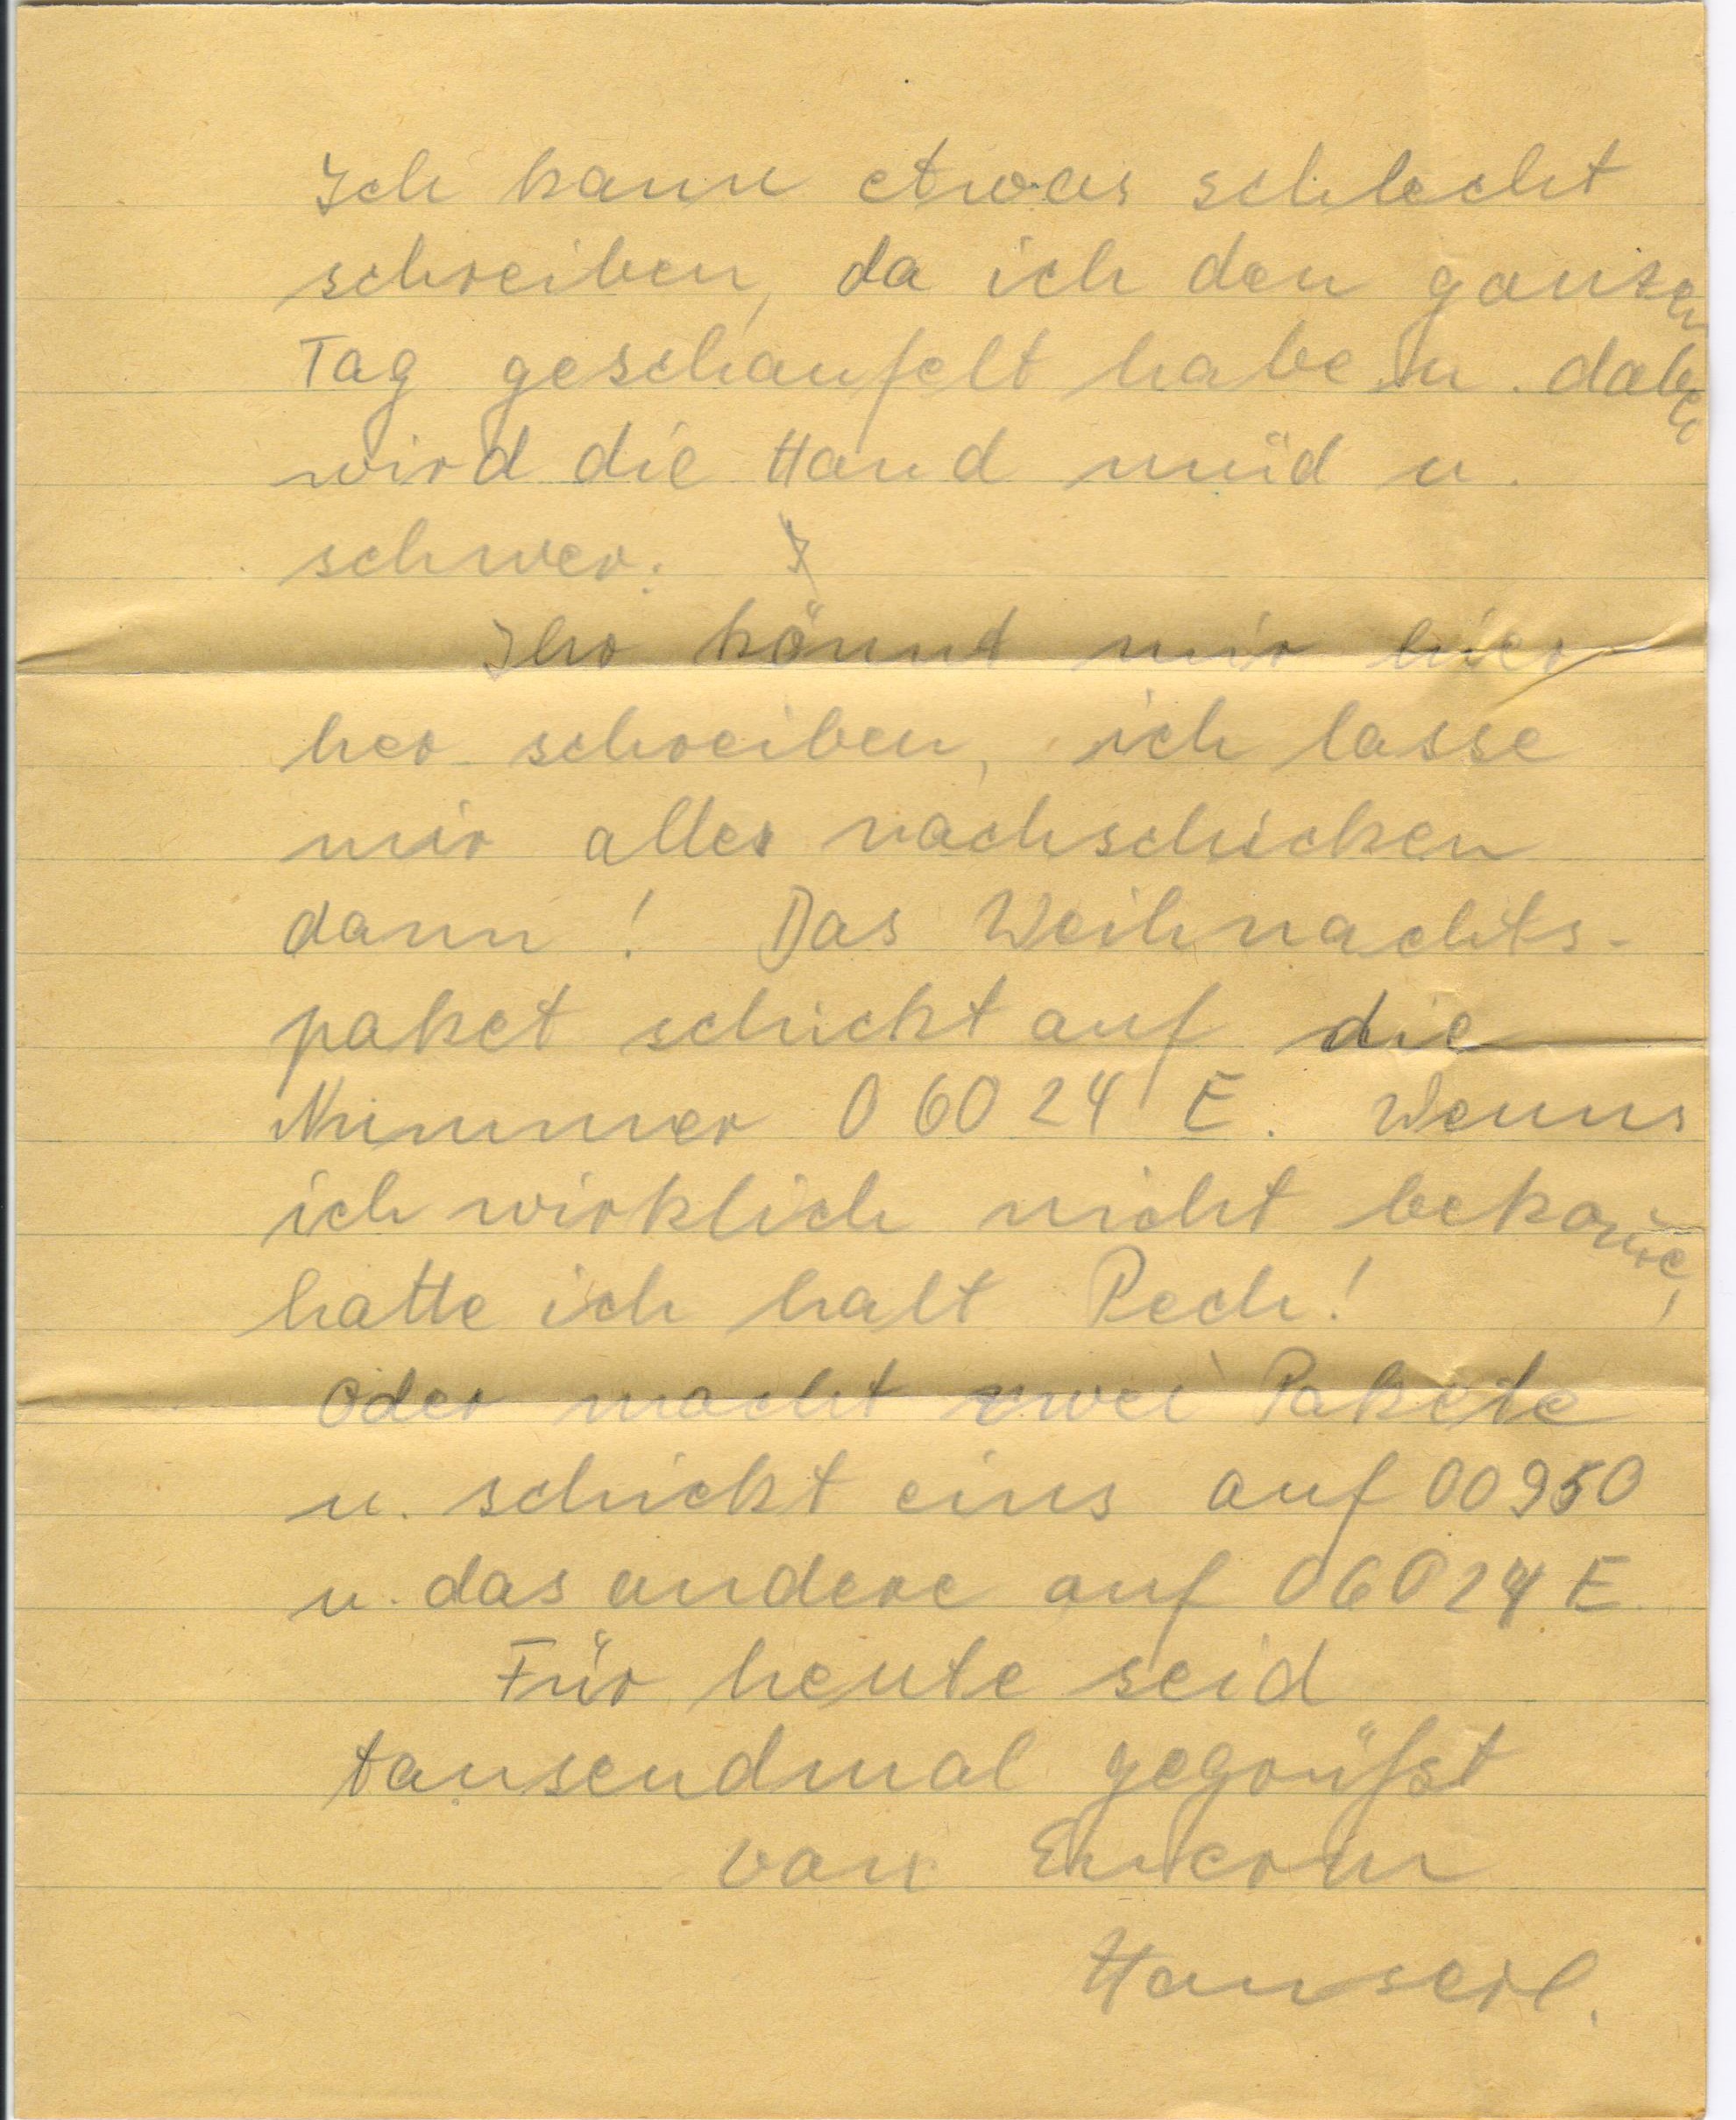 Ich kann etwas schlecht
schreiben, da ich den ganzen
Tag geschaufelt habe u. dabei
wird die Hand müd u.
schwer.
Ihr könnt mir hier
her schreiben, ich lasse
mir alles nachschicken
dann! Das Weihnachts-
paket schickt auf die
Nummer 06024 E. Wenns
ich wirklich nicht bekom̄e,
hatte ich halt Pech!
Oder macht zwei Pakete
u. schickt eins auf 00950
u. das andere auf 06024 E.
Für heute seid
tausendmal gegrüßt
von Eurem
Hanserl.